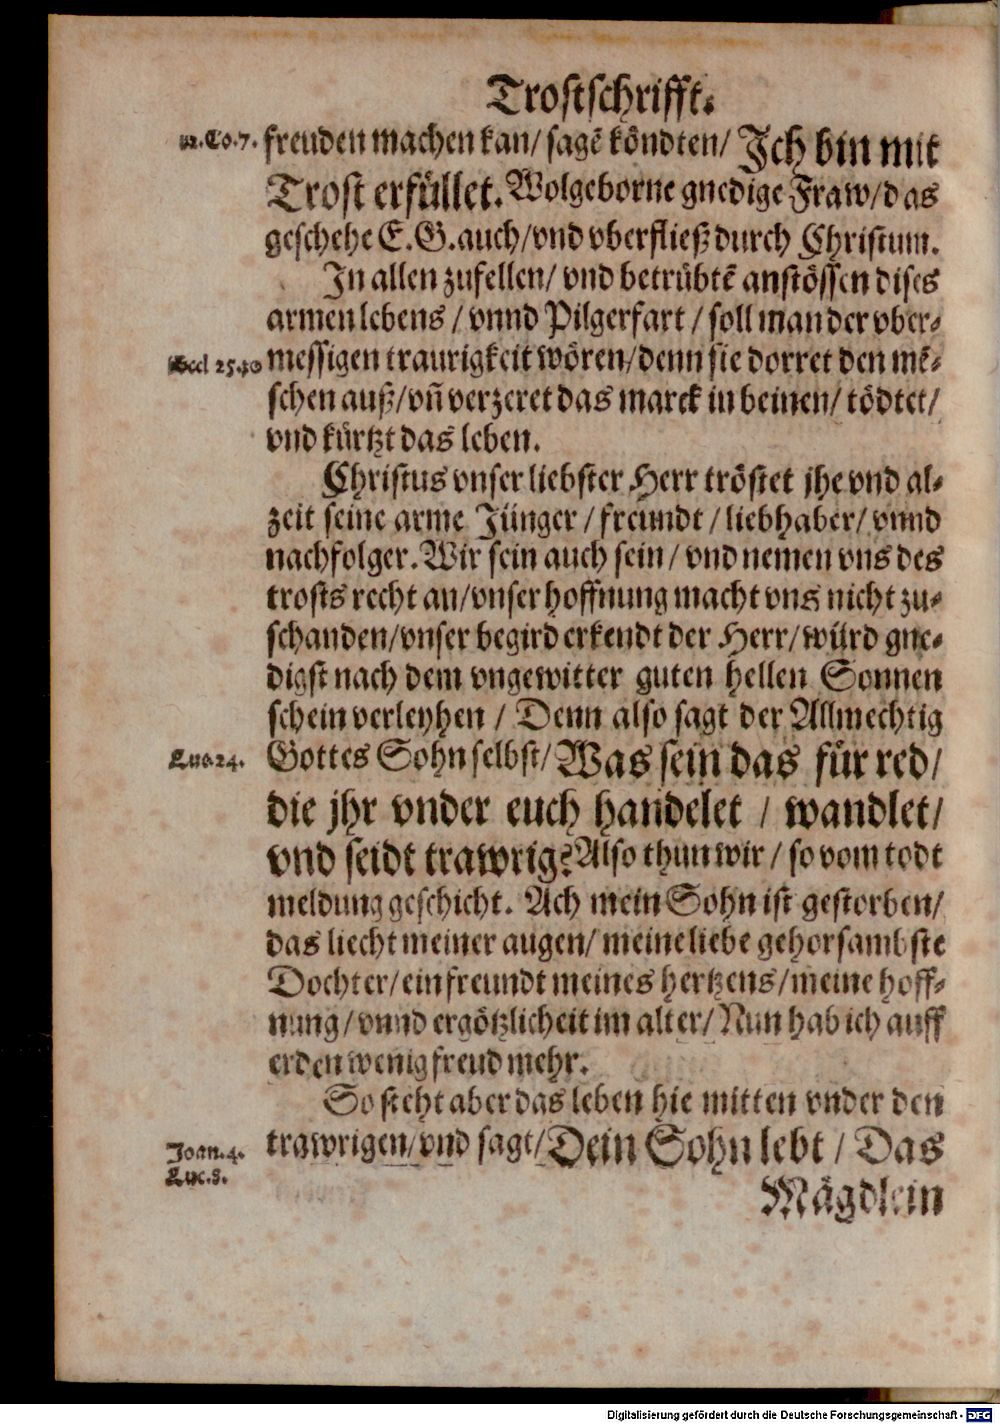 Trostschrifft.
2.Co.7. freuden machen kan/ sagē köndten/ Ich bin mit
Trost erfüllet. Wolgeborne gnedige Fraw/ das
geschehe E.G. auch/ vnd vberfließ durch Christum.
In allen zufellen/ vnd betrübtē anstössen dises
armen lebens / vnnd Pilgerfart / soll man der vber-
messigen traurigkeit wören/ denn sie dorret den mē-
schen auß/ vñ verzeret das marck in beinen/ tödtet/
vnd kürtzt das leben.
Christus vnser liebster Herr tröstet jhe vnd al-
zeit seine arme Jünger / freundt / liebhaber/ vnnd
nachfolger. Wir sein auch sein / vnd nemen vns des
trosts recht an/ vnser hoffnung macht vns nicht zu-
schanden/ vnser begird erkendt der Herr/ würd gne-
digst nach dem vngewitter guten hellen Sonnen
schein verleyhen / Denn also sagt der Allmechtig
Luc.24. Gottes Sohn selbst/ Was sein das für red/
die jhr vnder euch handelet / wandlet/
vnd seidt trawrig? Also thun wir / so vom todt
meldung geschicht. Ach mein Sohn ist gestorben/
das liecht meiner augen/ meine liebe gehorsambste
Dochter/ ein freundt meines hertzens/ meine hoff-
nung/ vnnd ergötzlicheit im alter/ Nun hab ich auff
erden wenig freud mehr.
So steht aber das leben hie mitten vnder den
Joan.4. trawrigen/ vnd sagt/ Dein Sohn lebt / Das
Luc.8.
Mägdlein
Digitalisierung gefördert durch die Deutsche Forschungsgemeinschaft - DFG